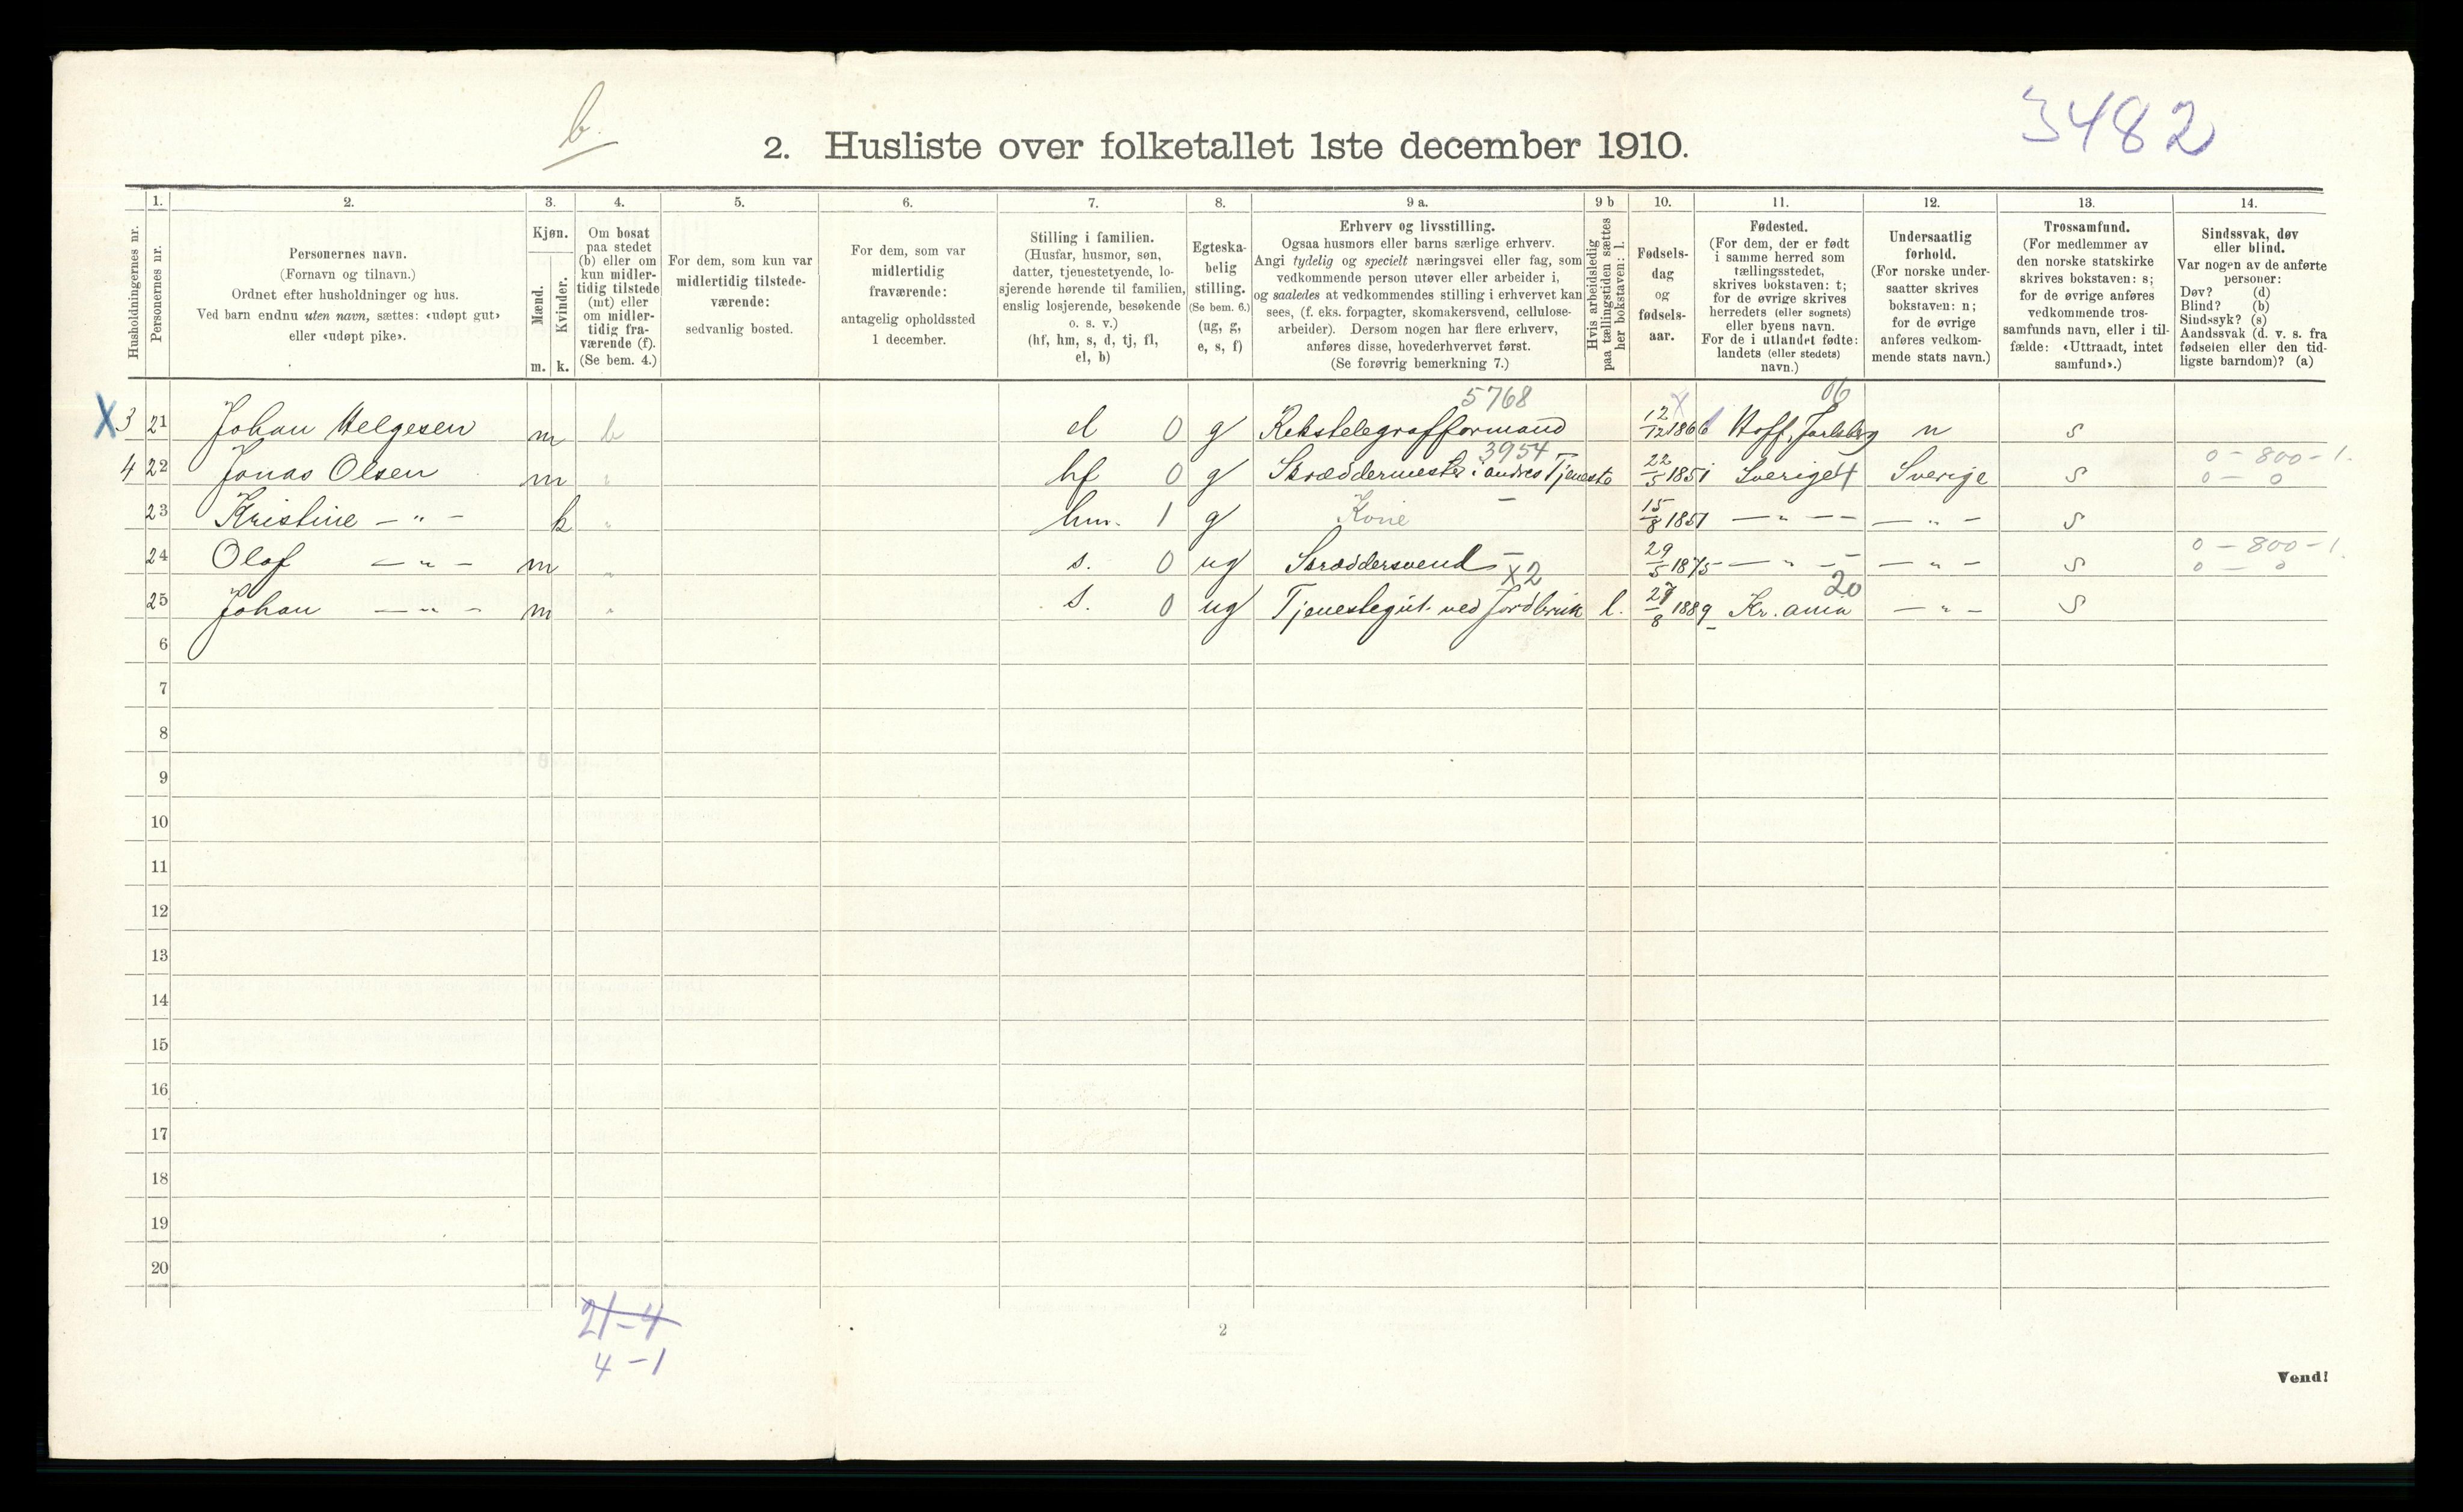 b.
3482
2. Husliste over folketallet 1ste december 1910.
Husholdningernes nr.
1. Personernes nr.
2. Personernes navn. (Fornavn og tilnavn.) Ordnet efter husholdninger og hus. Ved barn endnu uten navn, sættes: «udøpt gut» eller «udøpt pike».
3. Kjøn. Mænd. m. Kvinder. k.
4. Om bosat paa stedet (b) eller om kun midler- tidig tilstede (mt) eller om midler- tidig fra- værende (f). (Se bem. 4.)
5. For dem, som kun var midlertidig tilstede- værende: sedvanlig bosted.
6. For dem, som var midlertidig fraværende: antagelig opholdssted 1 december.
7. Stilling i familien. (Husfar, husmor, søn, datter, tjenestetyende, lo- sjerende hørende til familien, enslig losjerende, besøkende o. s. v.) (hf, hm, s, d, tj, fl, el, b)
8. Egteska- belig stilling. (Se bem. 6.) (ug, g, e, s, f)
9 a. Erhverv og livsstilling. Ogsaa husmors eller barns særlige erhverv. Angi tydelig og specielt næringsvei eller fag, som vedkommende person utøver eller arbeider i, og saaledes at vedkommendes stilling i erhvervet kan sees, (f. eks. forpagter, skomakersvend, cellulose- arbeider). Dersom nogen har flere erhverv, anføres disse, hovederhvervet først. (Se forøvrig bemerkning 7.)
9 b Hvis arbeidsledig paa tællingstiden sættes her bokstaven: l.
10. Fødsels- dag og fødsels- aar.
11. Fødested. (For dem, der er født i samme herred som tællingsstedet, skrives bokstaven: t; for de øvrige skrives herredets (eller sognets) eller byens navn. For de i utlandet fødte: landets (eller stedets) navn.)
12. Undersaatlig forhold. (For norske under- saatter skrives bokstaven: n; for de øvrige anføres vedkom- mende stats navn.)
13. Trossamfund. (For medlemmer av den norske statskirke skrives bokstaven: s; for de øvrige anføres vedkommende tros- samfunds navn, eller i til- fælde: «Uttraadt, intet samfund».)
14. Sindssvak, døv eller blind. Var nogen av de anførte personer: Døv? (d) Blind? (b) Sindssyk? (s) Aandssvak (d. v. s. fra fødselen eller den tid- ligste barndom)? (a)
5768 06
X 3 21 Johan Helgesen m b el 0 g Rikstelegrafformand 12/12 1866 Hoff, Jarlsberg n s
3954 0 - 800 - 1.
4 22 Jonas Olsen m " hf 0 g Skræddermester i andres Tjeneste 22/5 1851 Sverige 4 Sverige s 0 — 0
23 Kristine — " — k " hm. 1 g Kone 15/8 1851 — " — — — " — s
0 - 800 - 1.
24 Olaf — " — m " s. 0 ug Skræddersvend — 29/5 1875 — " — — " — s 0 — 0
x2 20
25 Johan — " — m " s. 0 ug Tjenestegut ved Jordbruk l. 27/8 1889 Kr.ania — " — s
6
7
8
9
10
11
12
13
14
15
16
17
18
19
20
21 - 4
4 - 1
2
Vend!